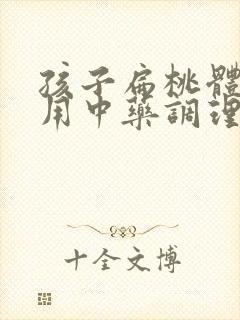 孩子扁桃體
用中藥調理
十全文博